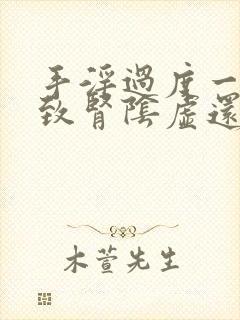 手淫過度一
致腎陰虛還
木萱先生